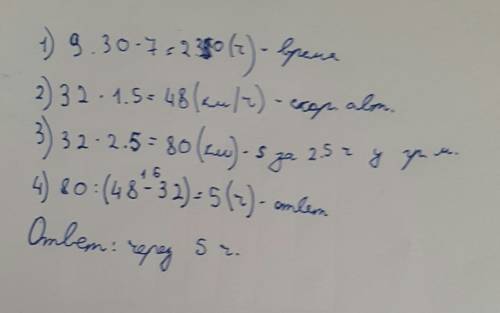 1) 9.30-7=2.30(ч) - время
2) 32 · 1.5 = 48 (км/ч) - скор. авт.
3) 32 · 2.5 = 80 (км) - S за 2.5 ч у гр. м.
16
4) 80 : (48-32) = 5 (ч) - ответ
Ответ: через 5 ч.